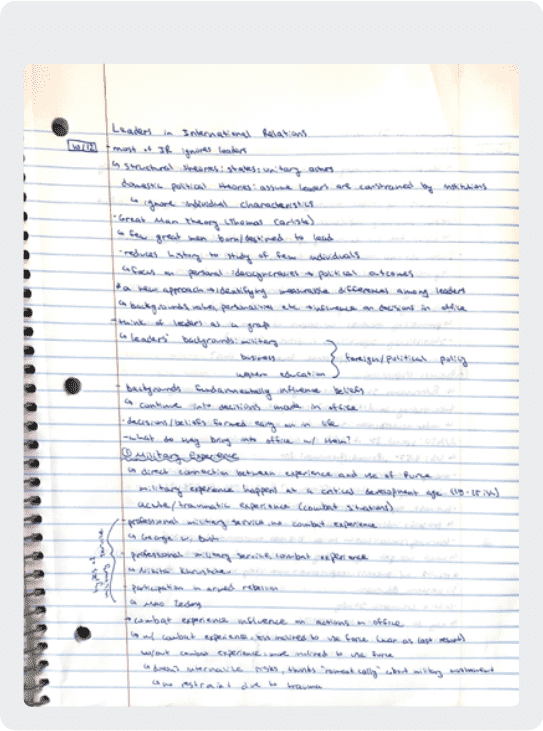 Leaders in International Relations
10/12 - most of IR ignores leaders
↳ structural theories: states: unitary actors
domestic political theories: assume leaders are constrained by institutions
↳ ignore individual characteristics
- Great Man Theory (Thomas Carlisle)
↳ few great men born/destined to lead
- reduces history to study of few individuals
↳ focus on personal ideosyncracies → political outcomes
* a new approach → identifying measurable differences among leaders
↳ backgrounds, personalities etc → influence on decisions in office
- think of leaders as a group
↳ leaders' backgrounds: military
business } foreign/political policy
western education
- backgrounds fundamentally influence beliefs
↳ continue into decisions made in office
- decisions/beliefs formed early on in life
- what do they bring into office w/ them?
① Military Experience
↳ direct connection between experience and use of force
military experience happens at a critical development age
acute/traumatic experience (combat situations)
types of military service
- professional military service, no combat experience
↳ George W. Bush
- professional military service, combat experience
↳ Nikita
- participation in armed rebellion
↳ Mao Zedong
→ combat experience influence on actions in office
↳ w/ combat experience: less inclined to use force (war as last resort)
w/out combat experience: more inclined to use force
↳ doesn't internalize risks, thinks "romantically" about military
↳ no restraint due to trauma